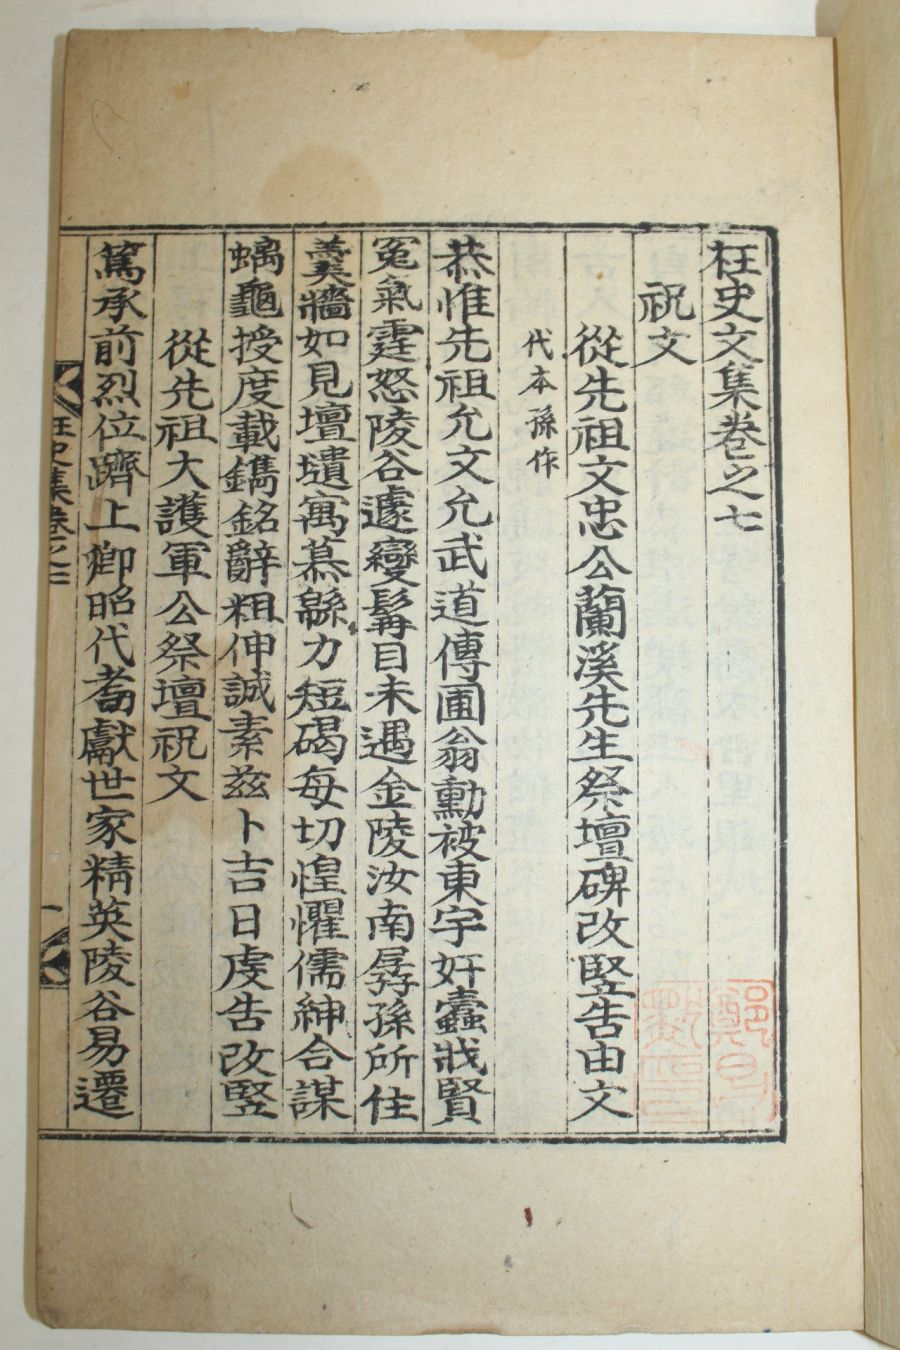 枉史文集卷之七
祝文
從先祖文忠公蘭溪先生祭壇碑改竪告由文
代本孫作
恭惟先祖允文允武道傳圃翁勳被東宇奸蠹戕賢
寃氣霆怒陵谷遽變髯目未遇金陵汝南孱孫所住
羹牆如見壇壝寓慕緜力短碣每切惶懼儒紳合謀
螭龜授度載鐫銘辭粗伸誠素茲卜吉日虔告改竪
從先祖大護軍公祭壇祝文
篤承前烈位躋上卿昭代耆獻世家精英陵谷易遷
枉史集卷之七
一